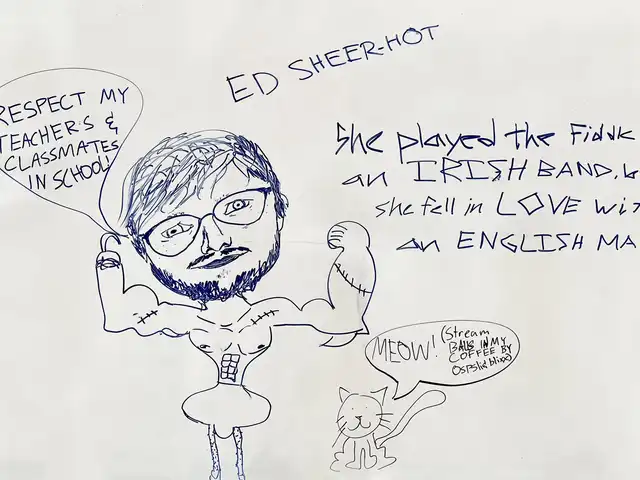 ED SHEER-HOT
RESPECT MY
TEACHERS &
CLASSMATES
IN SCHOOL!
She played the
an IRISH BAND,
she fell in LOVE
an ENGLISH MA
MEOW! (Stream
BALLS IN MY
COFFEE BY